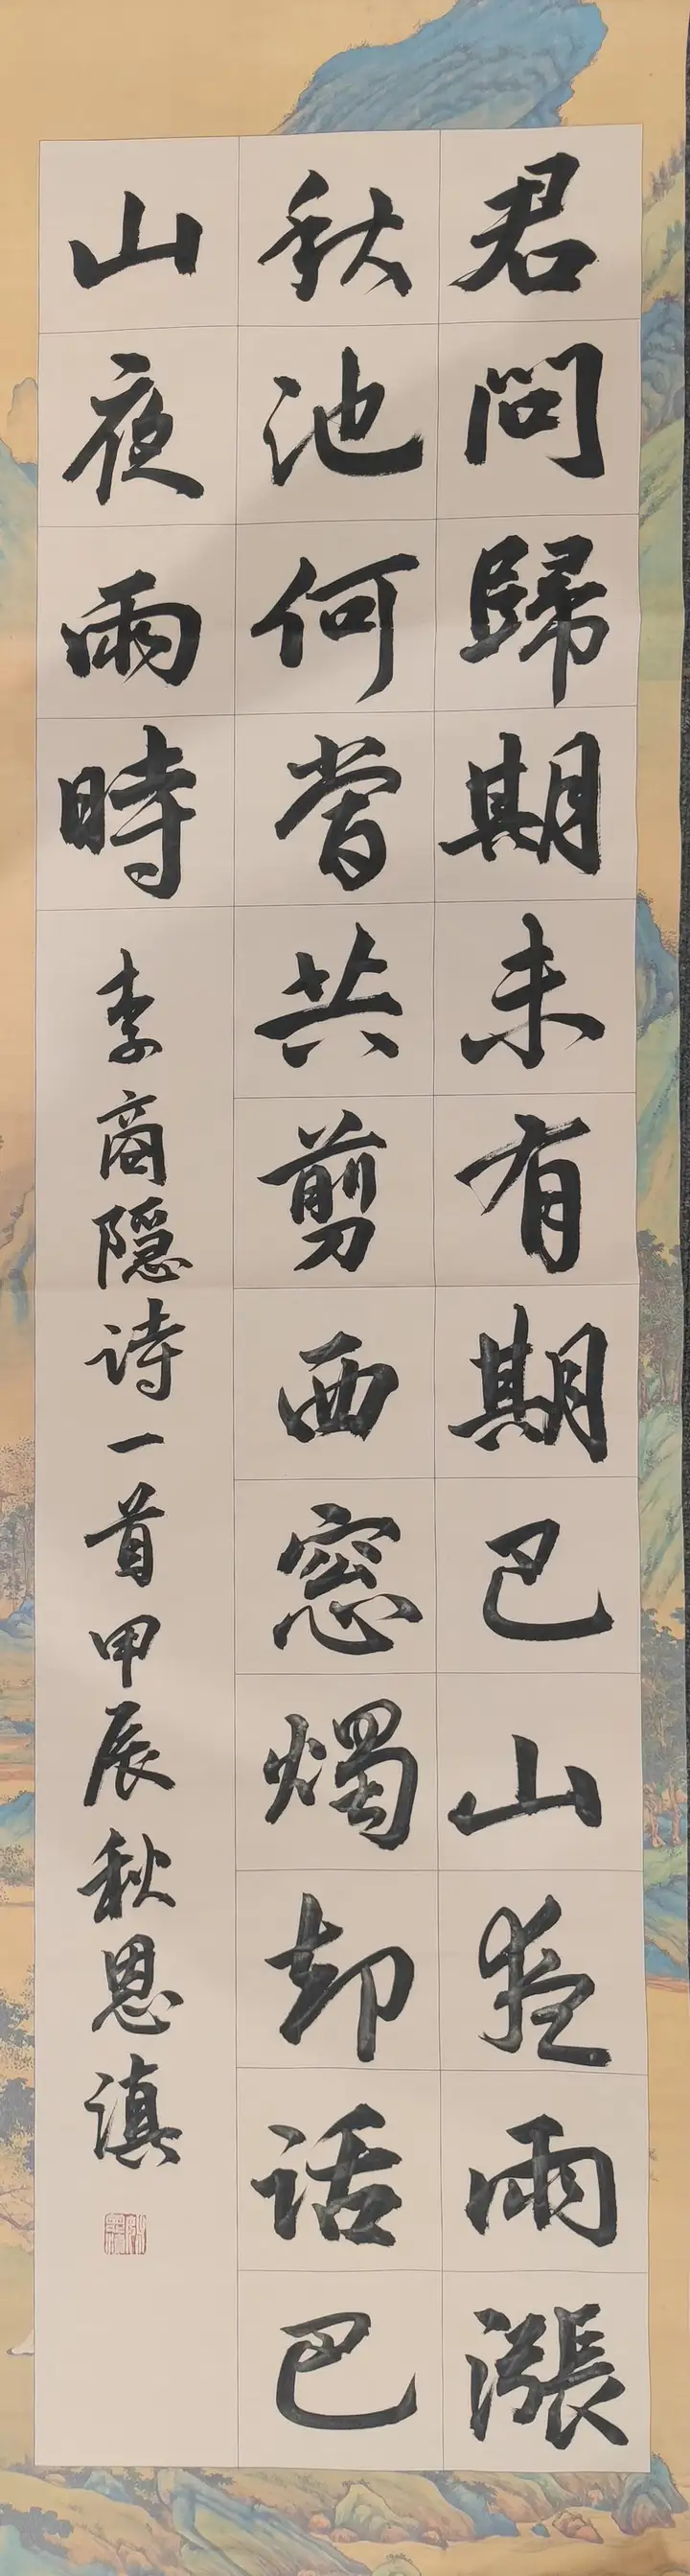 君問歸期未有期巴山夜雨漲
秋池何嘗共剪西窓燭却话巴
山夜雨時
李商隐诗一首甲辰秋恩